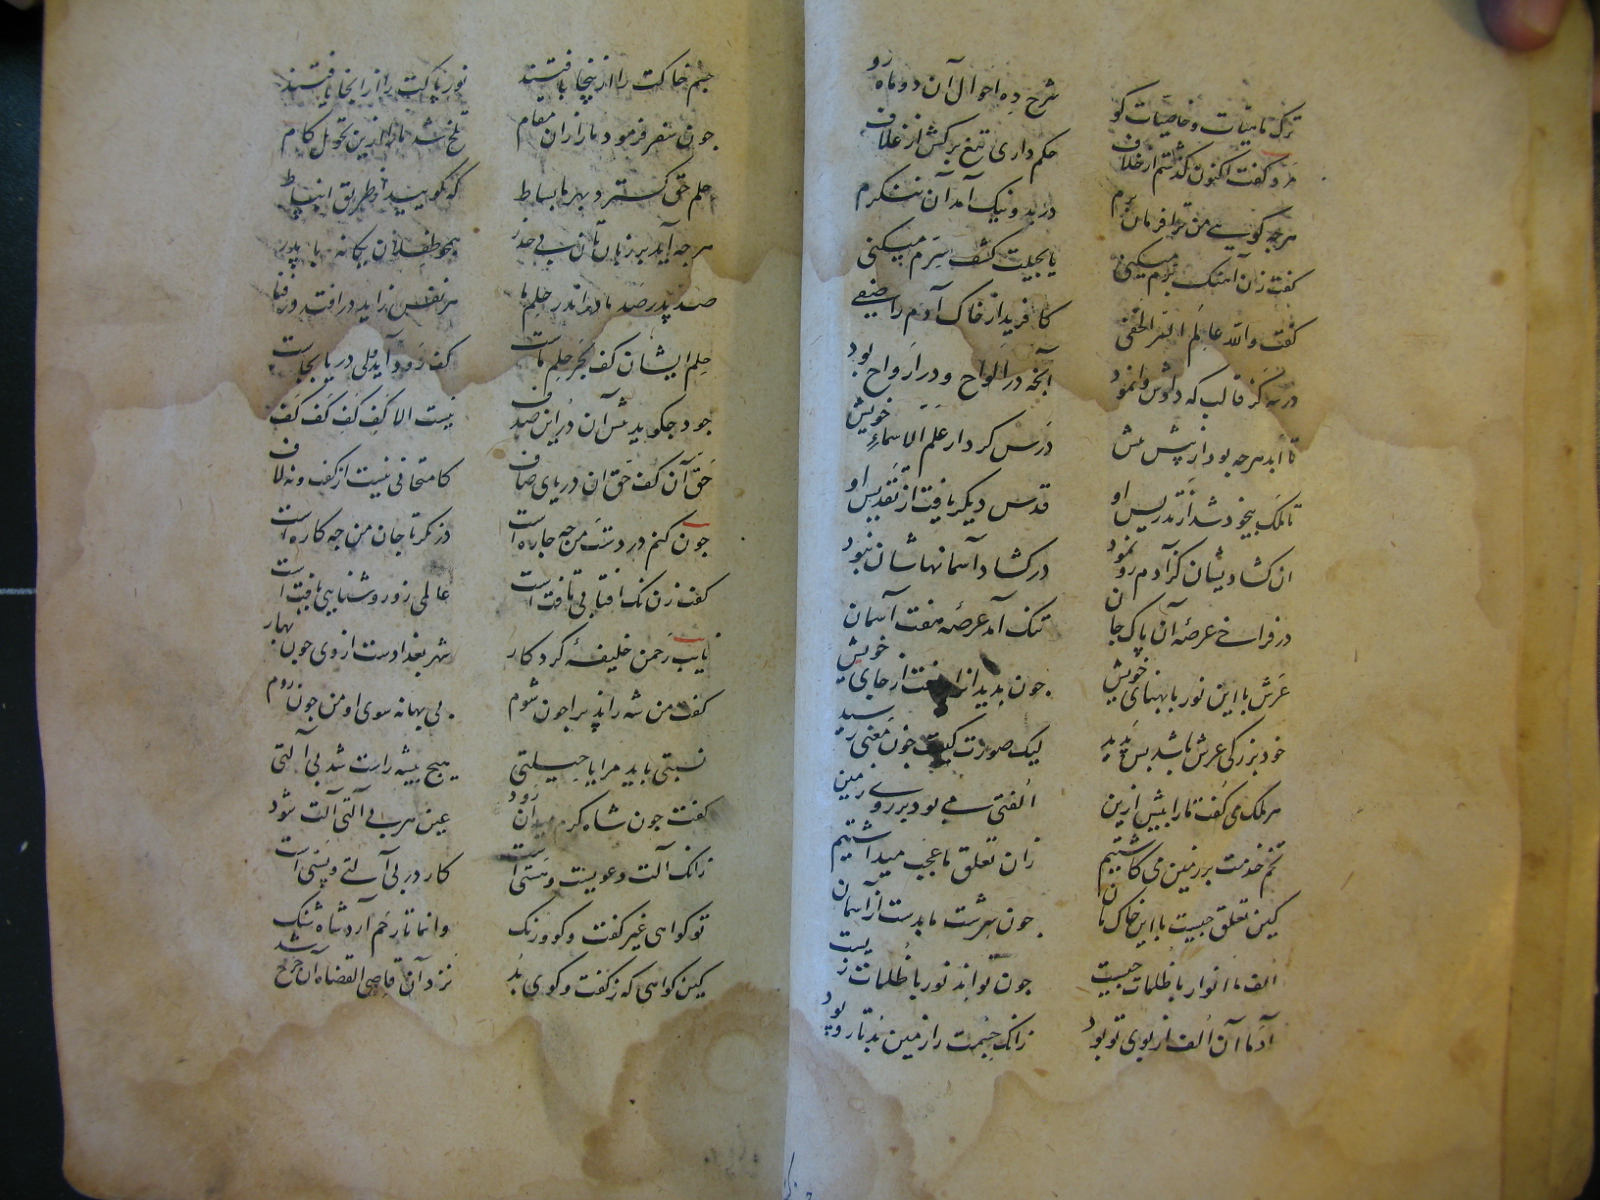 ترک ماهیات و خاصیات کو شرح ده احوال آن دو ماه رو
مرد کفت اکنون کذشتم از خلاف حکم داری تیغ برکش از غلاف
هرجه کویی من ترا فرمان برم در بد و نیک آمد آن ننکرم
کفت زن آهنک برم میکنی یا بحیلت کشف سرم میکنی
کفت والله عالم السر الخفی کافرید از خاک آدم را صفی
در سه کز قالب که دادش وانمود آنجه در الواح و در ارواح بود
تا ابد هرجه بود از پیش پیش درس کرد از علم الاسماء خویش
تا ملک بیخود شد از تدریس او قدس دیکر یافت از تقدیس او
آن کشادیشان کز آدم رو نمود در کشاد آسمانهاشان نبود
در فراخی عرصه آن پاک جان تنک آمد عرصه هفت آسمان
عرش با این نور با پهنای خویش جون بدید آنرا برفت از جای خویش
خود بزرکی عرش باشد بس پدید لیک صورت کیست جون معنی رسید
هر ملک می کفت ما را پیش ازین الفتی می بود بر روی زمین
تخم خدمت بر زمین می کاشتیم زان تعلق ما عجب میداشتیم
کین تعلق جیست با این خاک مان جون سرشت ما بدست از آسمان
الف ما انوار با ظلمات جیست جون تواند نور با ظلمات زیست
آدما آن الف از بوی تو بود زانک جسمت را زمین بد تار و پود
جسم خاکت را ازینجا یافتند نور پاکت را از اینجا یافتند
جون سفر فرمود ما را زان مقام تلخ شد ما را ازین تحویل کام
حلم حق کسترد بهر ما بساط که بکویید از طریق انبساط
هرجه آید بر زبان تان بی حذر همجو طفلان یکانه با پدر
صد پدر صد مادر اندر حلم ما هر نفس زاید در افتد در فنا
حلم ایشان کف بحر حلم ماست کف رود آید ولی دریا بجاست
خود جکویم پیش آن در این صدف نیست الا کف کف کف کف
حق آن کف حق آن دریای صاف کامتحانی نیست از کف و نه لاف
جون کنم در دست من جه جاره است در نکر تا جان من جه کاره است
کفت زن نک آفتابی تافت است عالمی زو روشنایی یافت است
نایب رحمن خلیفه کردکار شهر بغدادست از وی جون بهار
کفت من شه را پذیرا جون شوم بی بهانه سوی او من جون روم
نسبتی باید مرا یا حیلتی هیج پیشه راست شد بی آلتی
کفت جون شاه کرم میدان رود عین هر بی آلتی آلت شود
زانک آلت دعویست و هستی است کار در بی آلتی و پستی است
تو کواهی غیر کفت و کو و رنک وانما تا رحم آرد شاه شنک
کین کواهی که ز کفت و کوی بد نزد آن قاضی القضاه آن جرح شد